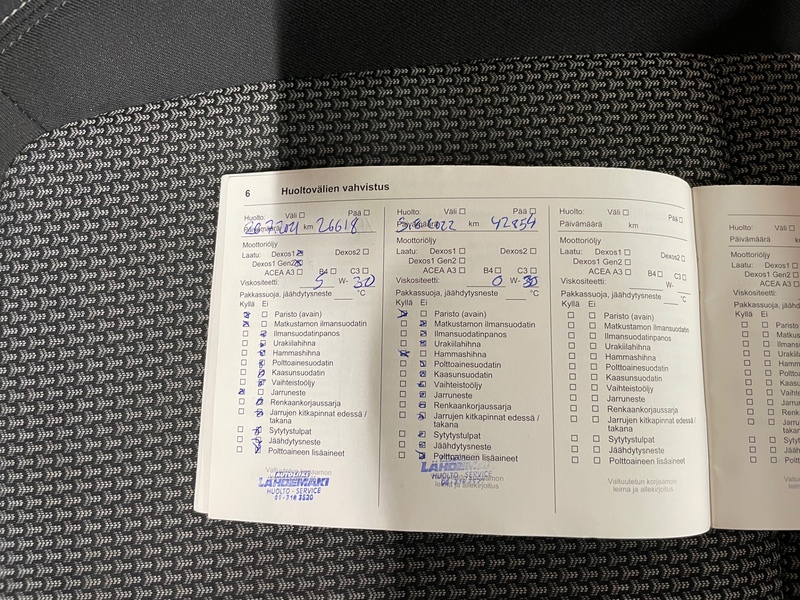 6 Huoltovälien vahvistus
Huolto: Väli ☐ Pää ☐
Päivämäärä km 26618
Moottoriöljy
Laatu: Dexos1 ☒ Dexos2 ☐
Dexos1 Gen2 ☒
ACEA A3 ☐ B4 ☐ C3 ☐
Viskositeetti: 5 W- 30
Pakkassuoja, jäähdytysneste °C
Kyllä Ei
☒ ☐ Paristo (avain)
☒ ☐ Matkustamon ilmansuodatin
☐ ☒ Ilmansuodatinpanos
☐ ☒ Urakiilahihna
☐ ☒ Hammashihna
☐ ☒ Polttoainesuodatin
☐ ☒ Kaasunsuodatin
☐ ☒ Vaihteistoöljy
☒ ☐ Jarruneste
☐ ☒ Renkaankorjaussarja
☐ ☒ Jarrujen kitkapinnat edessä /
takana
☐ ☒ Sytytystulpat
☐ ☒ Jäähdytysneste
☐ ☒ Polttoaineen lisäaineet
Valtuutetun korjaamon
LÄHDEMÄKI
HUOLTO - SERVICE
Huolto: Väli ☐ Pää ☐
Päivämäärä km 42854
Moottoriöljy
Laatu: Dexos1 ☐ Dexos2 ☐
Dexos1 Gen2 ☐
ACEA A3 ☐ B4 ☐ C3 ☐
Viskositeetti: 0 W- 30
Pakkassuoja, jäähdytysneste °C
Kyllä Ei
☒ ☐ Paristo (avain)
☐ ☒ Matkustamon ilmansuodatin
☐ ☒ Ilmansuodatinpanos
☐ ☒ Urakiilahihna
☒ ☐ Hammashihna
☐ ☒ Polttoainesuodatin
☐ ☒ Kaasunsuodatin
☐ ☒ Vaihteistoöljy
☐ ☒ Jarruneste
☐ ☒ Renkaankorjaussarja
☐ ☒ Jarrujen kitkapinnat edessä /
takana
☐ ☒ Sytytystulpat
☐ ☒ Jäähdytysneste
☐ ☒ Polttoaineen lisäaineet
LÄHDEMÄKI
HUOLTO - SERVICE
leima ja allekirjoitus
Huolto: Väli ☐ Pää ☐
Päivämäärä km
Moottoriöljy
Laatu: Dexos1 ☐ Dexos2 ☐
Dexos1 Gen2 ☐
ACEA A3 ☐ B4 ☐ C3 ☐
Viskositeetti: W-
Pakkassuoja, jäähdytysneste °C
Kyllä Ei
☐ ☐ Paristo (avain)
☐ ☐ Matkustamon ilmansuodatin
☐ ☐ Ilmansuodatinpanos
☐ ☐ Urakiilahihna
☐ ☐ Hammashihna
☐ ☐ Polttoainesuodatin
☐ ☐ Kaasunsuodatin
☐ ☐ Vaihteistoöljy
☐ ☐ Jarruneste
☐ ☐ Renkaankorjaussarja
☐ ☐ Jarrujen kitkapinnat edessä /
takana
☐ ☐ Sytytystulpat
☐ ☐ Jäähdytysneste
☐ ☐ Polttoaineen lisäaineet
Valtuutetun korjaamon
leima ja allekirjoitus
Huolto: Väli ☐
Päivämäärä km
Moottoriöljy
Laatu: Dexos1 ☐
Dexos1 Gen2 ☐
ACEA A3 ☐
Viskositeetti:
Pakkassuoja, jäähdy
Kyllä Ei
☐ ☐ Paristo
☐ ☐ Matkus
☐ ☐ Ilmans
☐ ☐ Urakiil
☐ ☐ Hamm
☐ ☐ Poltto
☐ ☐ Kaasu
☐ ☐ Vaiht
☐ ☐ Jarru
☐ ☐ Renk
☐ ☐ Jarru
takan
☐ ☐ Syty
☐ ☐ Jääh
☐ ☐ Poltt